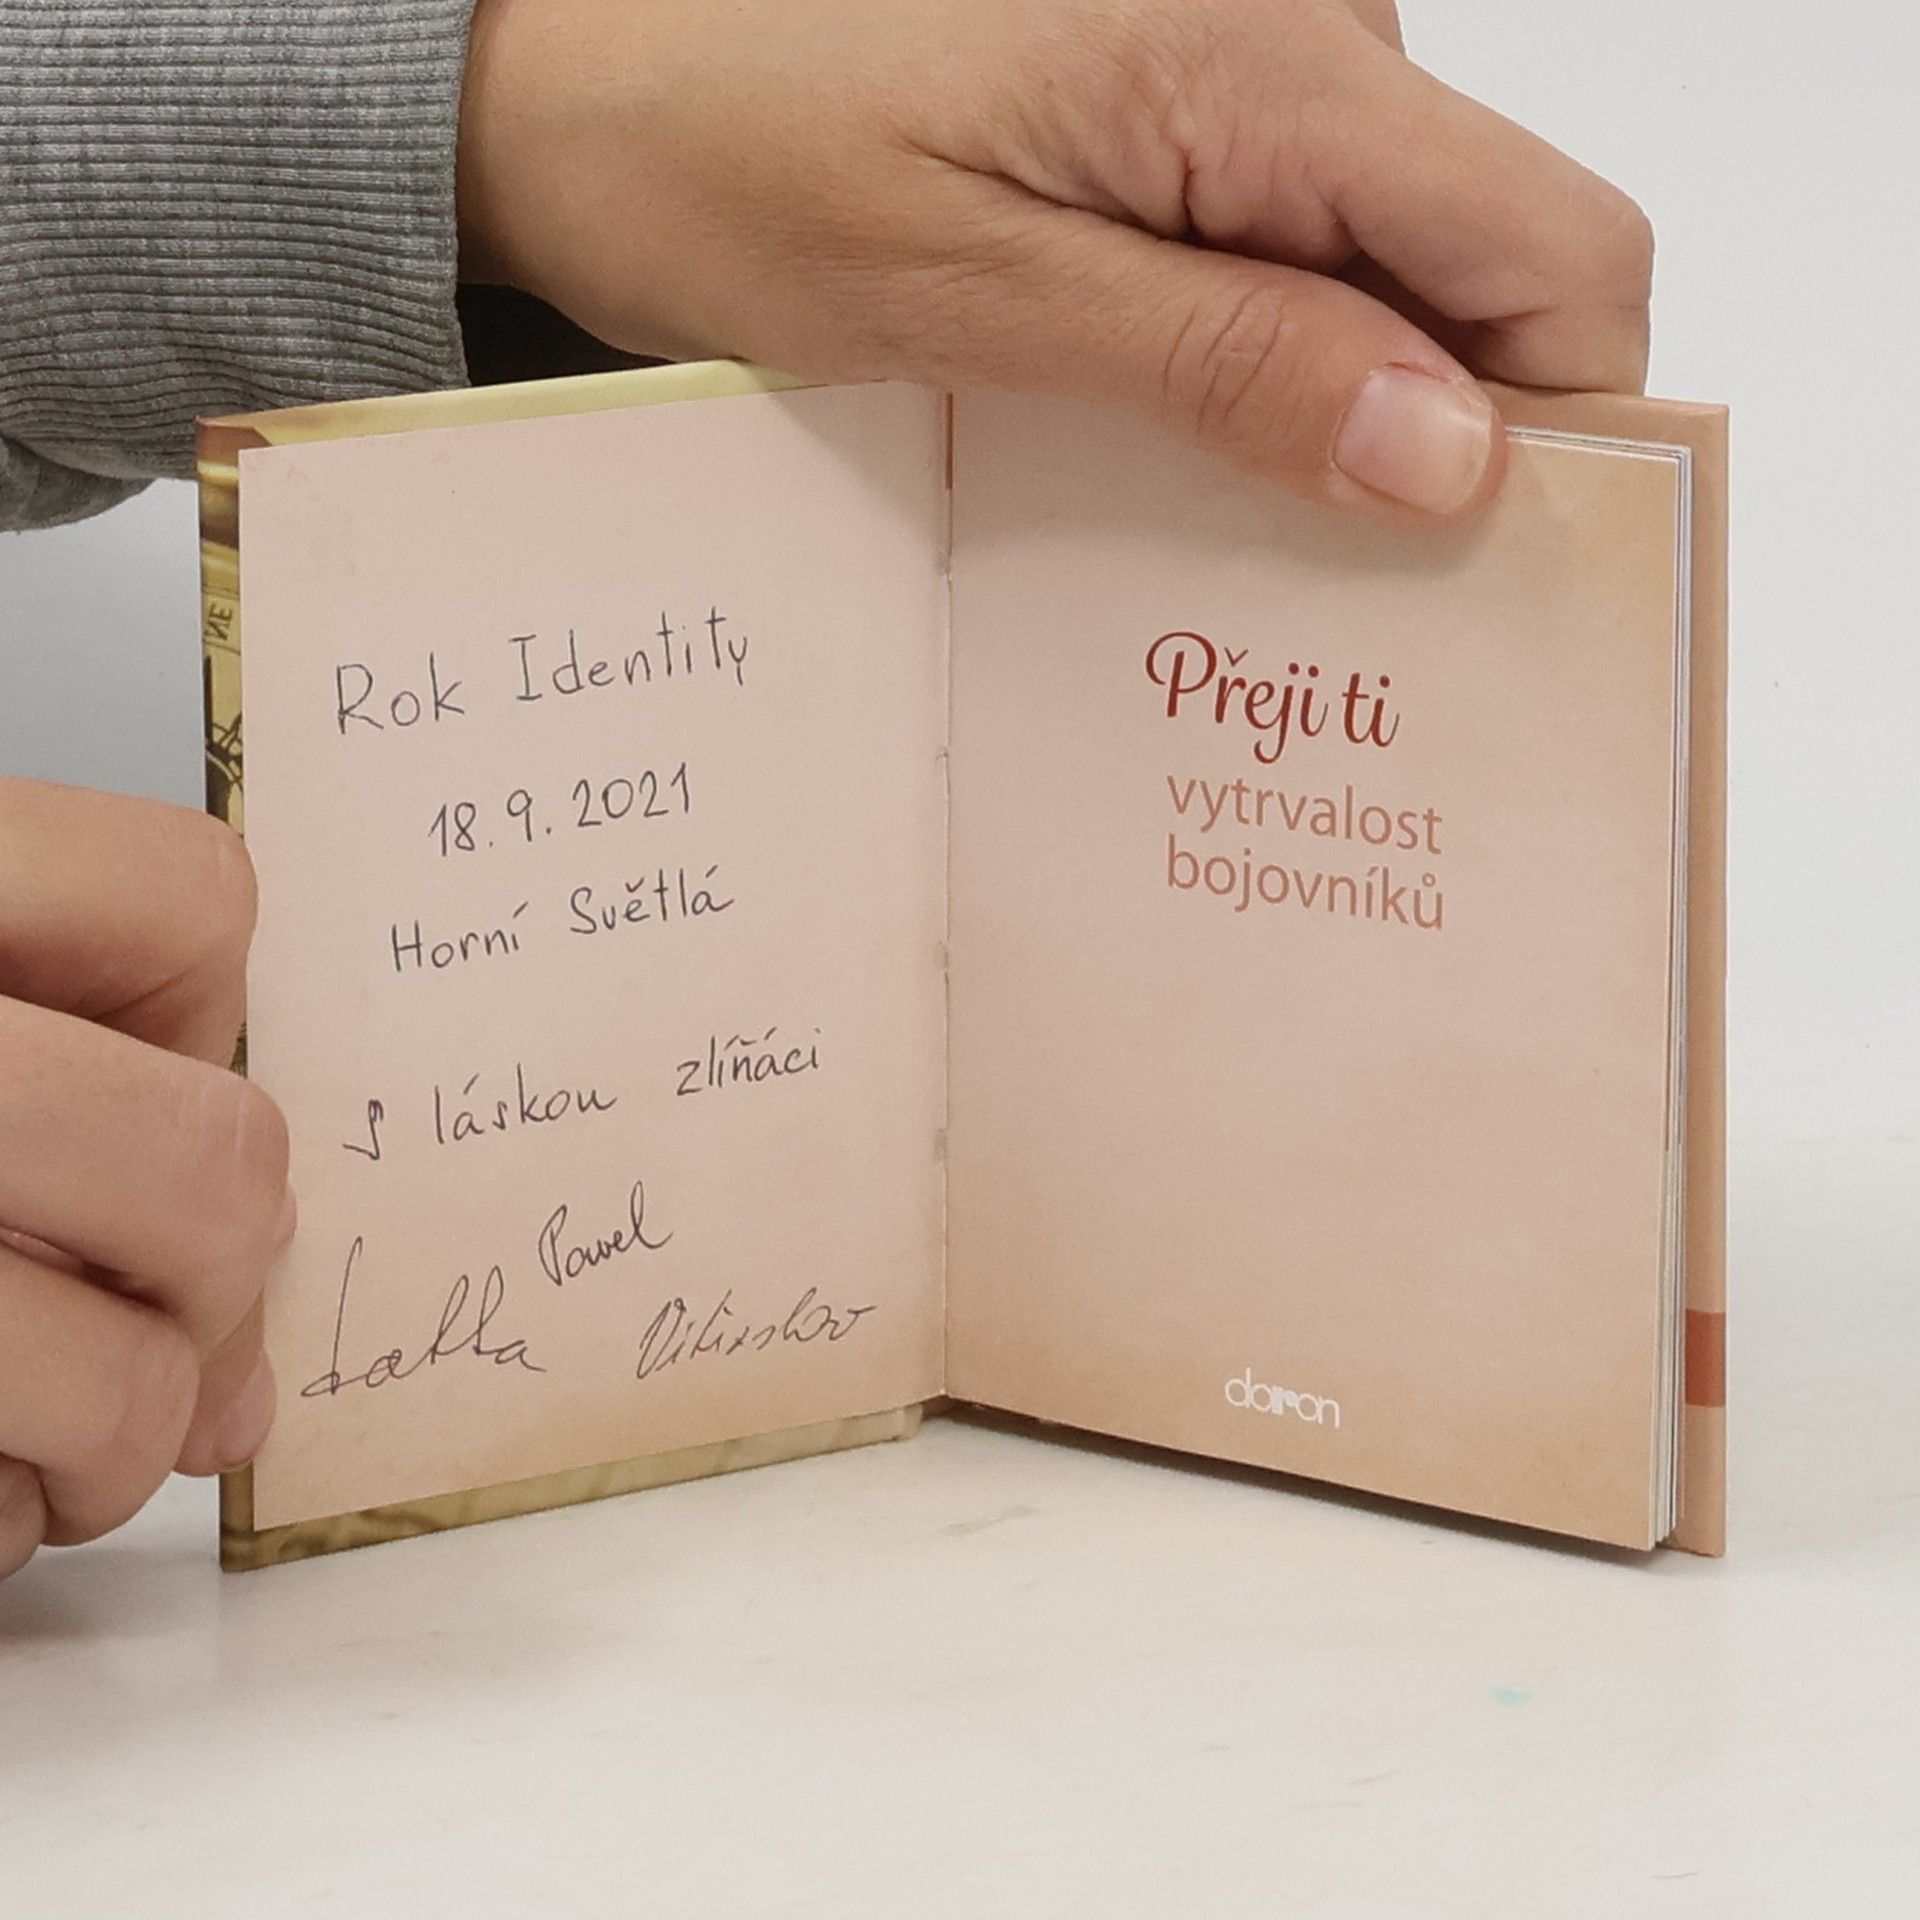 Rok Identity
18. 9. 2021
Horní Světlá
S láskou zlíňáci
Pavel
Přeji ti
vytrvalost
bojovníků
doron